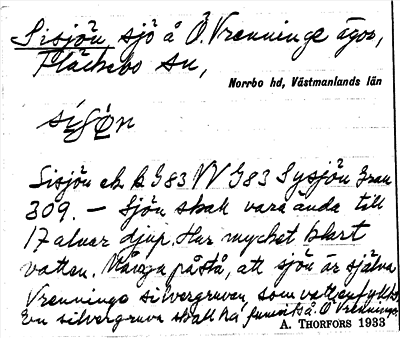 Sisjön sjö å Ö. Vrenninge ägor,
Fläckebo sn,
Norrbo hd, Västmanlands län
Sisjön ek. G83 VV G83 Sysjön Gran
309. — Sjön skall vara ända till
17 alnar djup. Har mycket klart
vatten. Många påstå, att sjön är själva
Vrenninge silvergruva, som vattenfyllts.
En silvergruva skall ha funnits å Ö Vrenninge.
A. THORFORS 1933